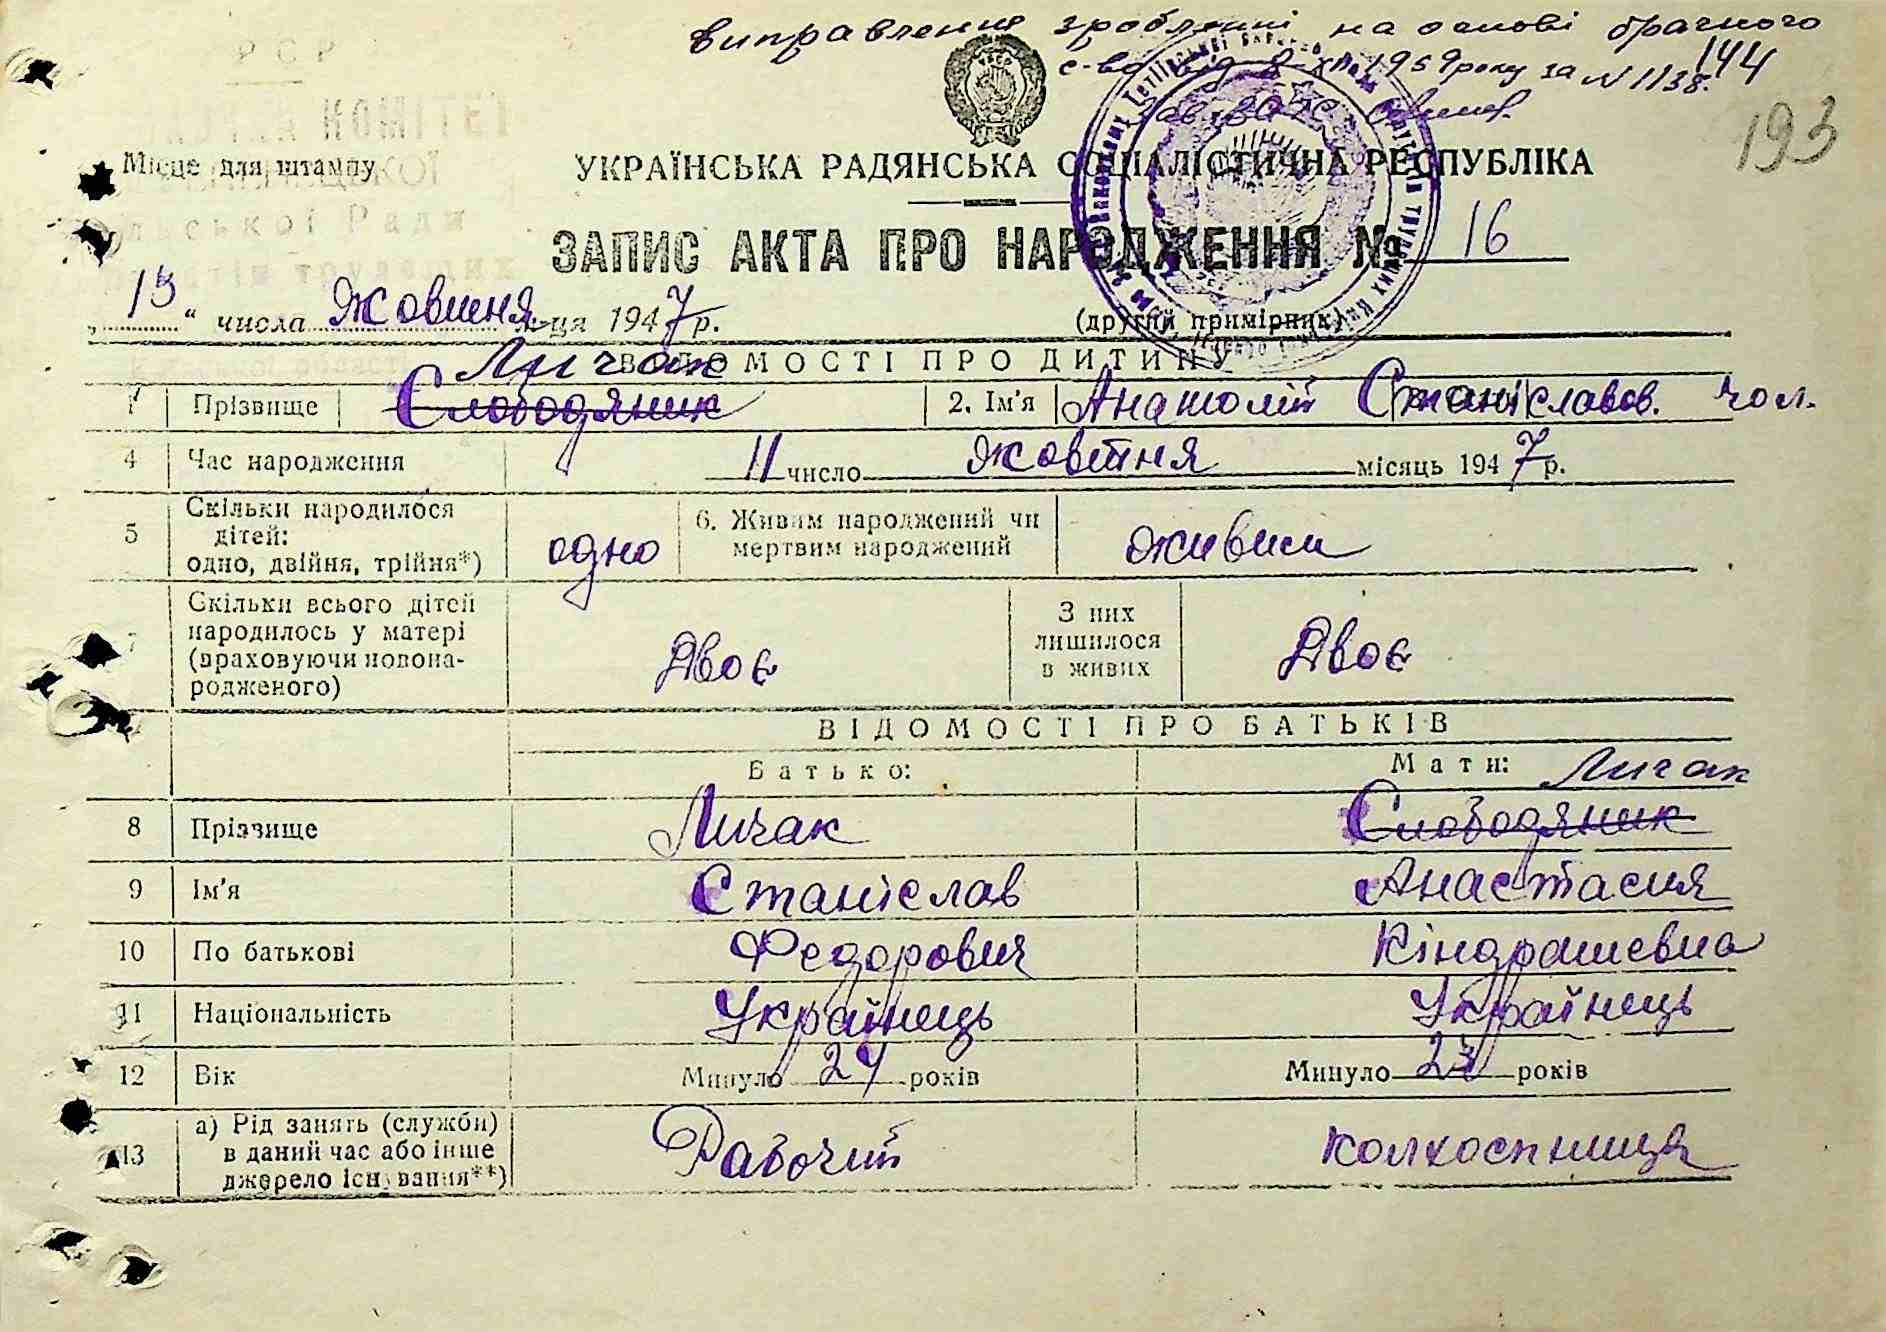 виправлення зроблені на основі брачного
с-ва від 8-XII 1959 року за N 1138.
144
193
Місце для штампу
УКРАЇНСЬКА РАДЯНСЬКА СОЦІАЛІСТИЧНА РЕСПУБЛІКА
ЗАПИС АКТА ПРО НАРОДЖЕННЯ № 16
„13“ числа Жовтня м-ця 1947 р.
(другий примірник)
ВІДОМОСТІ ПРО ДИТИНУ
Личак
1 Прізвище Слободяник 2. Ім'я Анатолій Станіславов. чол.
4 Час народження 11 число жовтня місяць 1947 р.
5 Скільки народилося дітей: одно, двійня, трійня*) одно 6. Живим народжений чи мертвим народжений живим
7 Скільки всього дітей народилось у матері (враховуючи новонародженого) Двоє З них лишилося в живих Двоє
ВІДОМОСТІ ПРО БАТЬКІВ
Батько: Мати: Личак
8 Прізвище Личак Слободяник
9 Ім'я Станіслав Анастасия
10 По батькові Федорович Кіндратевна
11 Національність Українець Українець
12 Вік Минуло 24 років Минуло 23 років
13 а) Рід занять (служби) в даний час або інше джерело існування**) Рабочий колхоспниця